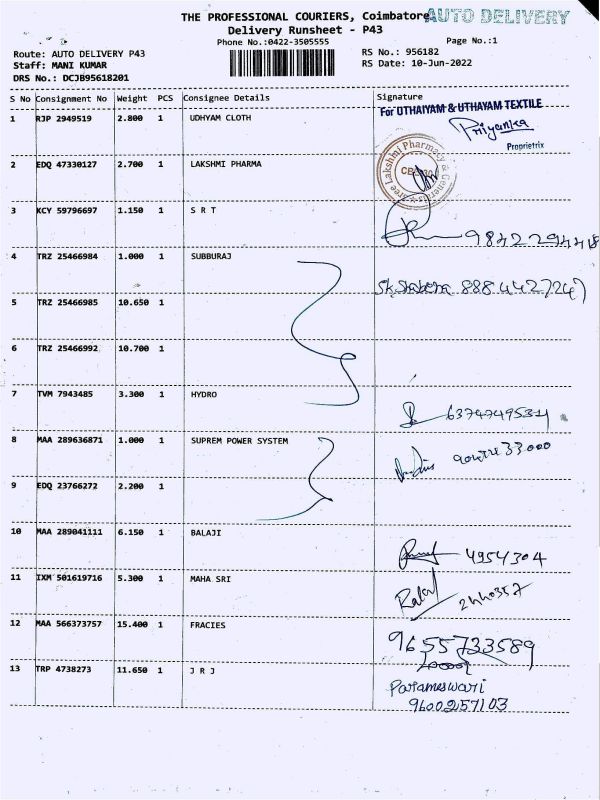 THE PROFESSIONAL COURIERS, Coimbatore
AUTO DELIVERY
Delivery Runsheet - P43
Phone No.:0422-3505555
Page No.:1
Route: AUTO DELIVERY P43
RS No.: 956182
Staff: MANI KUMAR
RS Date: 10-Jun-2022
DRS No.: DCJB95618201
S No Consignment No Weight PCS Consignee Details Signature
For UTHAIYAM & UTHAYAM TEXTILE
1 RJP 2949519 2.800 1 UDHYAM CLOTH Priyanka
Proprietrix
2 EDQ 47330127 2.700 1 LAKSHMI PHARMA
Sree Lakshmi Pharmacy & General
3 KCY 59796697 1.150 1 S R T
4 TRZ 25466984 1.000 1 SUBBURAJ
5 TRZ 25466985 10.650 1
6 TRZ 25466992 10.700 1
7 TVM 7943485 3.300 1 HYDRO
8 MAA 289636871 1.000 1 SUPREM POWER SYSTEM
9 EDQ 23766272 2.200 1
10 MAA 289041111 6.150 1 BALAJI
4954304
11 IXM 501619716 5.300 1 MAHA SRI
2440357
12 MAA 566373757 15.400 1 FRACIES
9655733589
13 TRP 4738273 11.650 1 J R J
Parameswari
9600257103